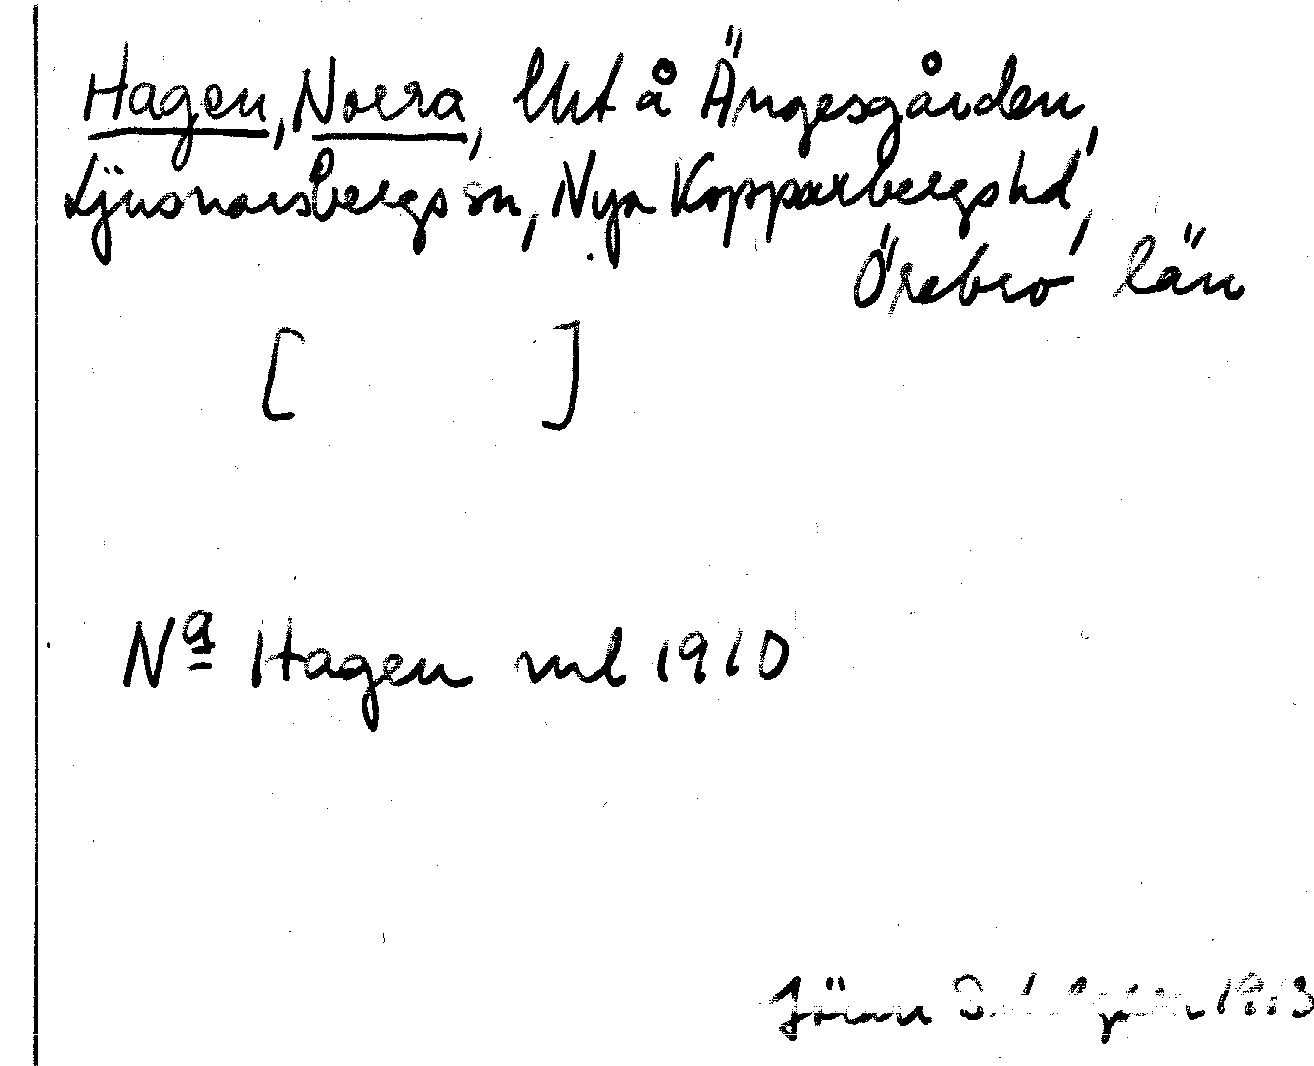 Hagen, Norra, lht å Ängesgården,
Ljusnarsbergs sn, Nya Kopparbergs hd,
Örebro län
[ ]
Na Hagen ml 1910
Jöran